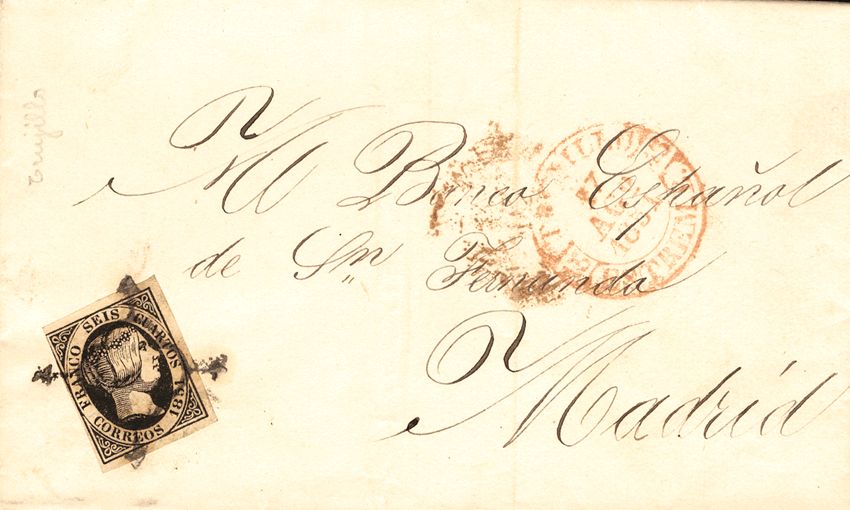 Trujillo
Al Banco Español
de Sn Fernando
Madrid
FRANCO SEIS CUARTOS 1851
CORREOS